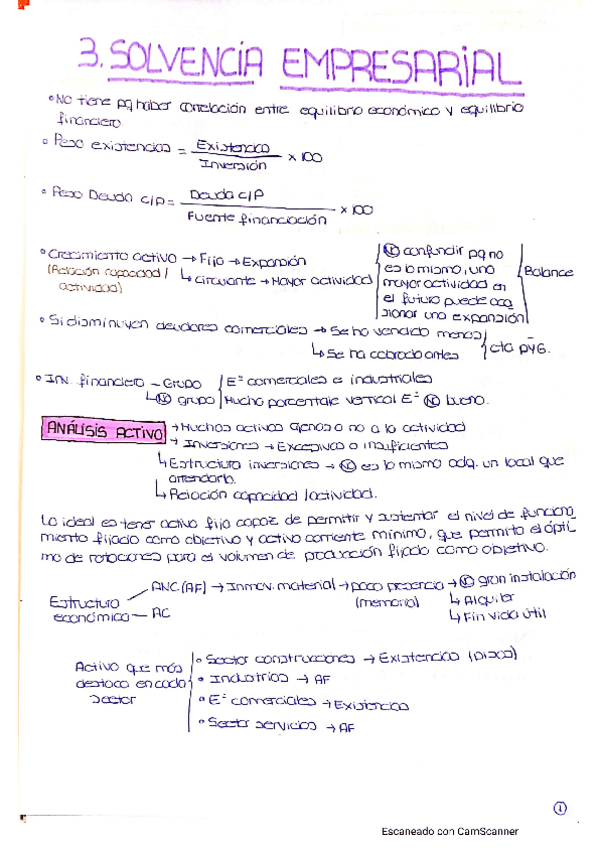 3. SOLVENCIA EMPRESARIAL
• NO tiene pq haber correlación entre equilibrio económico y equilibrio
financiero
• Peso existencias = Existencias / Inversión × 100
• Peso Deuda c/p = Deuda c/P / Fuente financiación × 100
• Crecimiento activo → Fijo → Expansión
(Relación capacidad /
actividad)
↳ circulante → Mayor actividad
NO confundir pq no
es lo mismo, uno
mayor actividad en
el futuro puede oca
sionar una expansión
Balance
• Si disminuyen deudores comerciales → Se ha vendido menos
↳ Se ha cobrado antes
cta pyG.
• Inv. financiero - Grupo
↳ NO grupo
Eª comerciales e industriales
Mucho porcentaje vertical Eª NO bueno.
ANÁLISIS ACTIVO
→ Muchos activos ajenos o no a la actividad
→ Inversiones → Excesivas o insuficientes
↳ Estructura inversiones → NO es lo mismo adq. un local que
arrendarlo.
↳ Relación capacidad / actividad.
Lo ideal es tener activo fijo capaz de permitir y sustentar el nivel de funciona
miento fijado como objetivo y activo corriente mínimo, que permita el ópti
mo de rotaciones para el volumen de producción fijado como objetivo.
Estructura
económica
ANC (AF) → Inmov. material → poca presencia → NO gran instalación
(memoria)
↳ Alquiler
↳ Fin vida útil
AC
Activo que más
destaca en cada
sector
• Sector construcciones → Existencias (pisos)
• Industrias → AF
• Eª comerciales → Existencias
• Sector servicios → AF
1
Escaneado con CamScanner